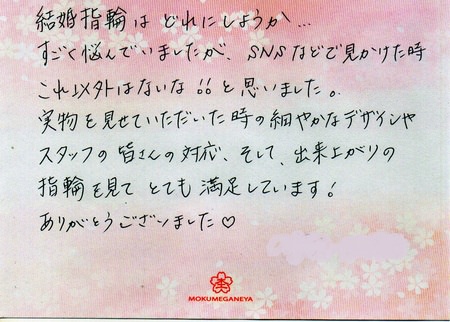 結婚指輪は どれにしようか…
すごく悩んでいましたが、SNSなどで見かけた時
これ以外はないな!!と思いました。
実物を見せていただいた時の細やかなデザインや
スタッフの皆さんの対応、そして、出来上がりの
指輪を見て とても 満足しています!
ありがとうございました♡
MOKUMEGANEYA